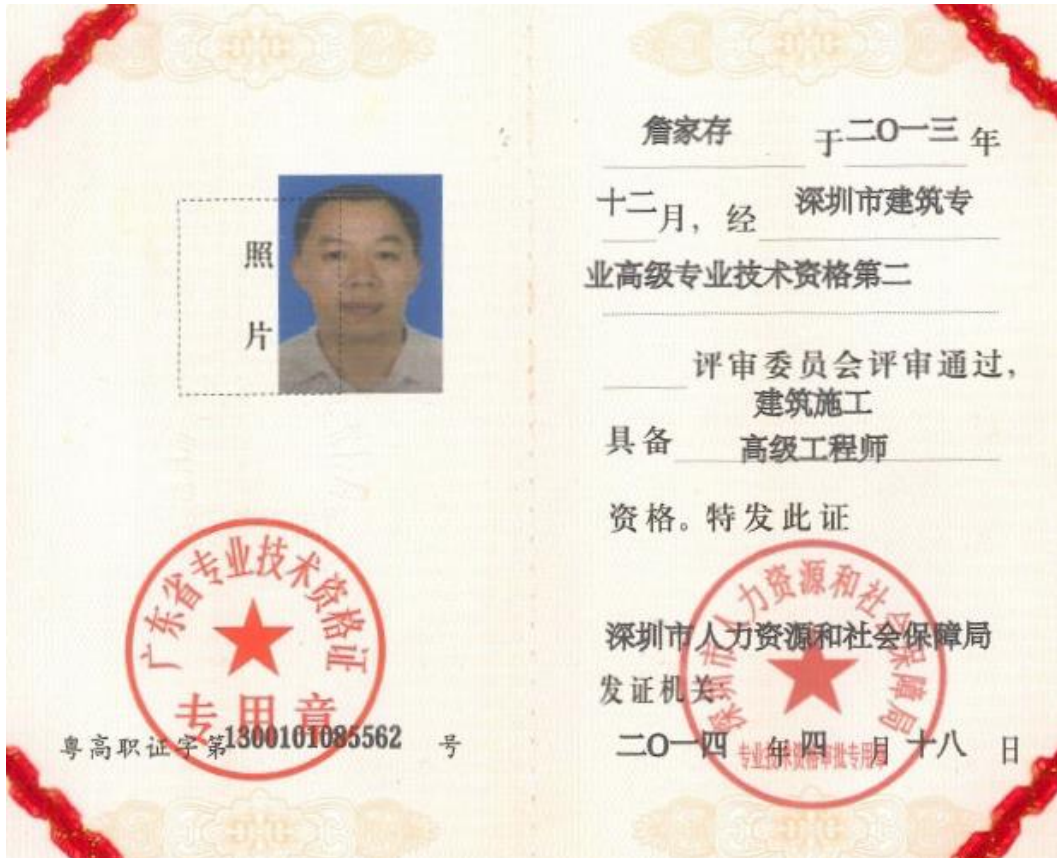 照
片
广东省专业技术资格证
专用章
粤高职证字第1300101085562号
詹家存于二〇一三年
十二月，经深圳市建筑专
业高级专业技术资格第二
评审委员会评审通过，
建筑施工
具备高级工程师
资格。特发此证
深圳市人力资源和社会保障局
深圳市人力资源和社会保障局
发证机关:
专业技术资格审批专用章
二〇一四年四月十八日